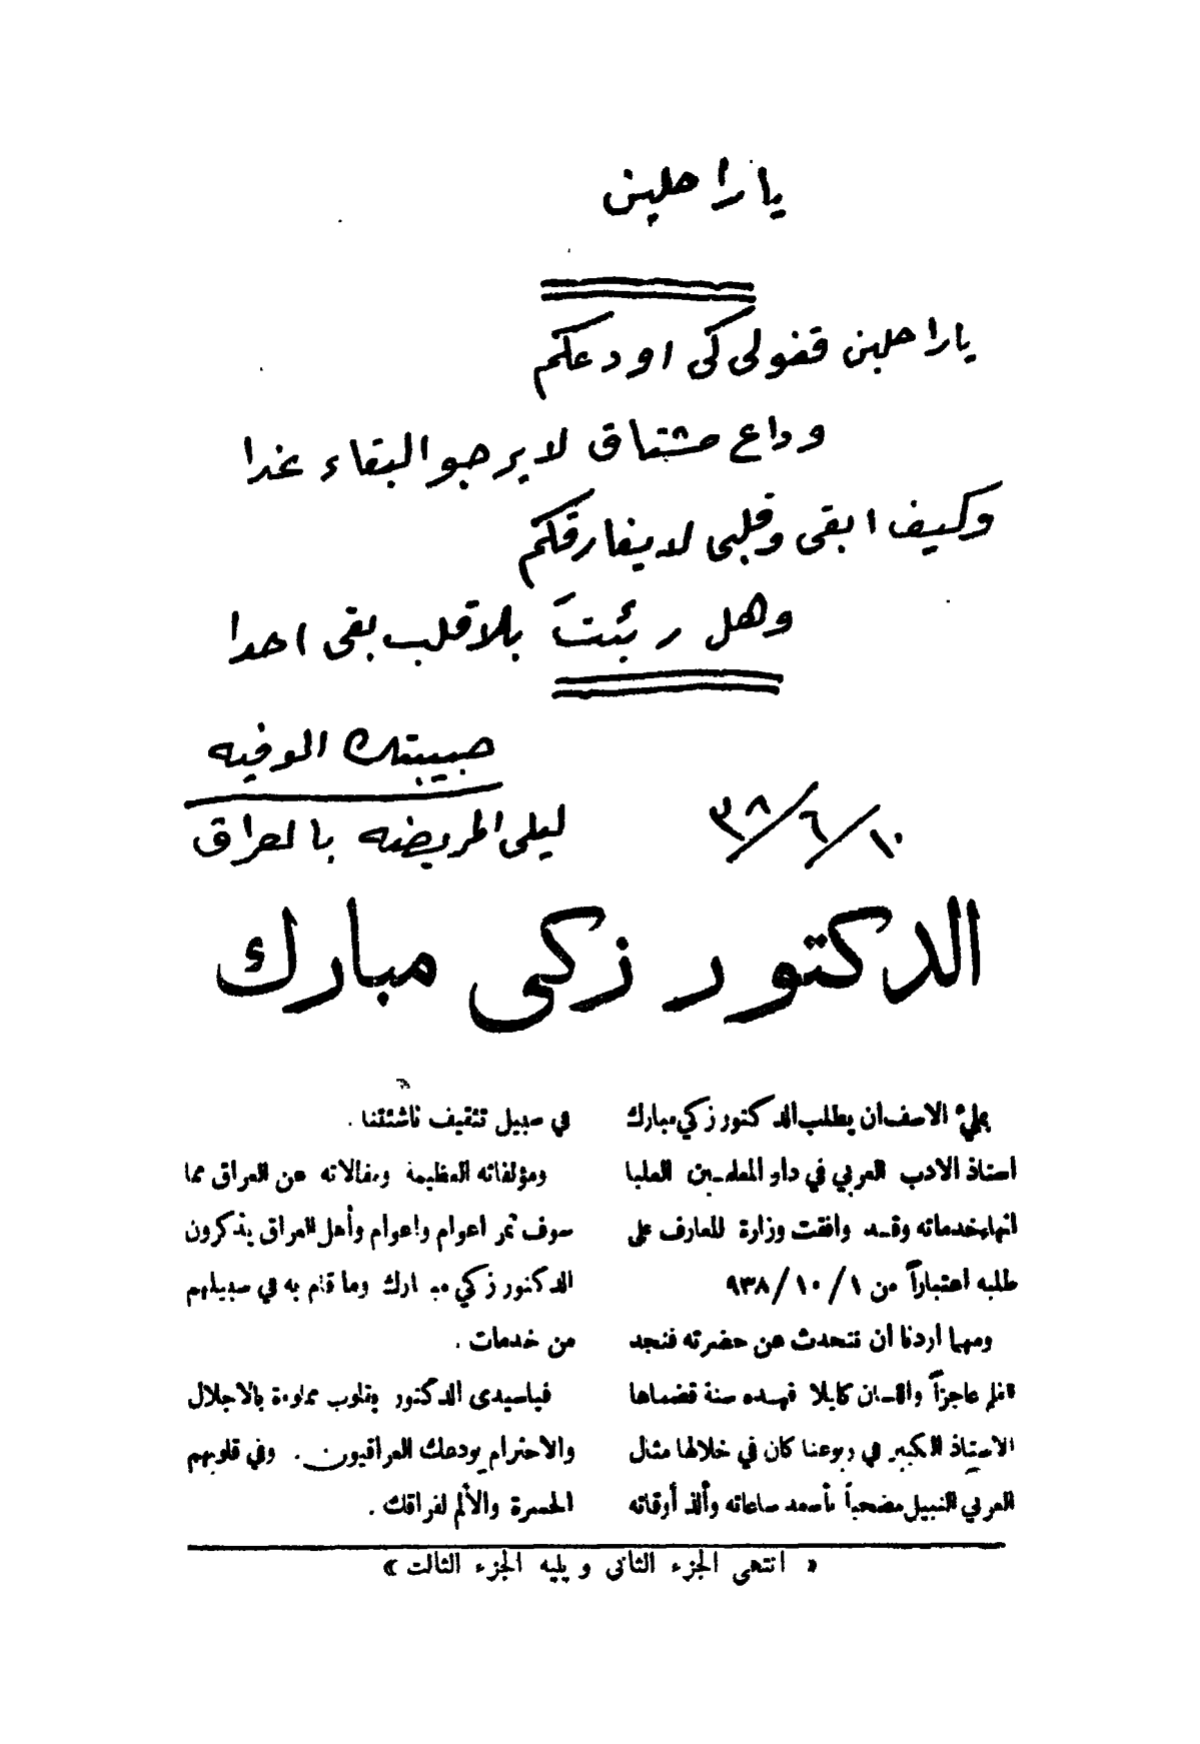 يا راحلين
يا راحلين قفولي كي اودعكم
وداع مشتاق لا يرجو البقاء غدا
وكيف ابقى وقلبي لا يفارقكم
وهل رئيتَ بلا قلب بقى احدا
حبيبتك الوفيه
ليلى المريضه بالعراق
١٠/٦/٣٨
الدكتور زكى مبارك
بملئ الاسف ان يطلب الدكتور زكي مبارك
استاذ الادب العربي في دار المعلمين العليا
انهاء خدماته وقد وافقت وزارة المعارف على
طلبه اعتباراً من ١ / ١٠ / ٩٣٨
ومهما اردنا ان نتحدث عن حضرته فنجد
القلم عاجزاً واللسان كليلا فهذه سنة قضاها
الاستاذ الكبير في ربوعنا كان في خلالها مثال
العربي النبيل مضحياً بأسعد ساعاته وألذ أوقاته
في سبيل تثقيف ناشئتنا .
ومؤلفاته العظيمة ومقالاته عن العراق مما
سوف تمر اعوام واعوام وأهل العراق يذكرون
الدكتور زكي مبارك وما قام به في سبيلهم
من خدمات .
فياسيدى الدكتور بقلوب مملوءة بالاجلال
والاحترام يودعك العراقيون . وفي قلوبهم
الحسرة والألم لفراقك .
« انتهى الجزء الثانى ويليه الجزء الثالث »